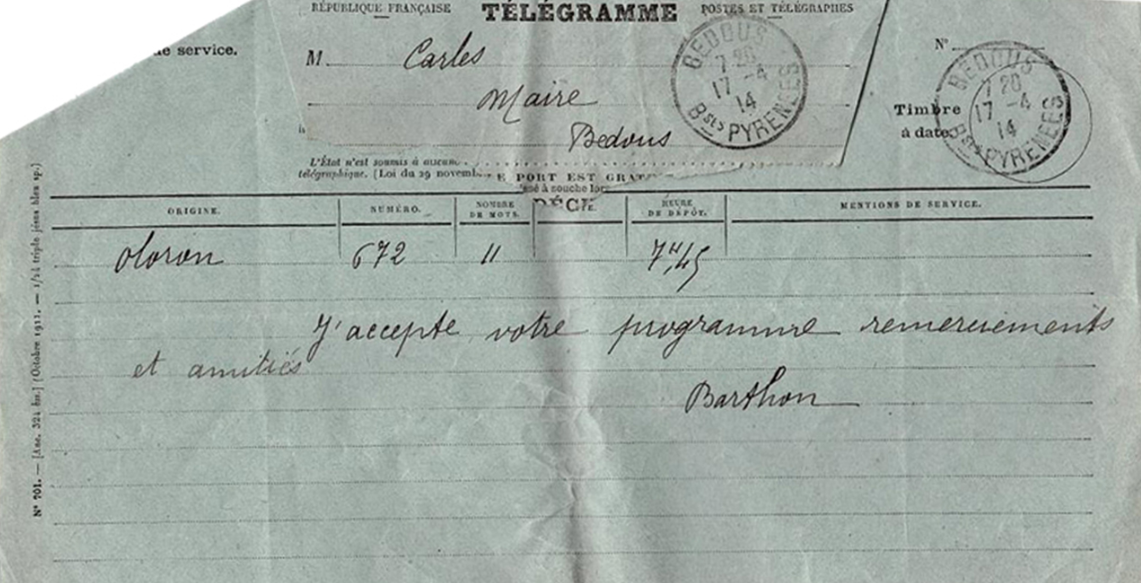 RÉPUBLIQUE FRANÇAISE TÉLÉGRAMME POSTES ET TÉLÉGRAPHES
de service.
M. Carles
Maire
Bedous
BEDOUS
7 20
17 -4
14
Bses PYRENEES
N°
Timbre
à date.
BEDOUS
7 20
17 -4
14
Bses PYRENEES
L'État n'est soumis à aucune
télégraphique. (Loi du 29 novemb
LE PORT EST GRAT
à souche lor
ORIGINE. NUMÉRO. NOMBRE DE MOTS. HEURE DE DÉPÔT. MENTIONS DE SERVICE.
Oloron 672 11 7H45
J'accepte votre programme remerciements
et amitiés
Barthon
N° 701. — (Octobre 1911. — 1/24 triple jésus bleu sp.)